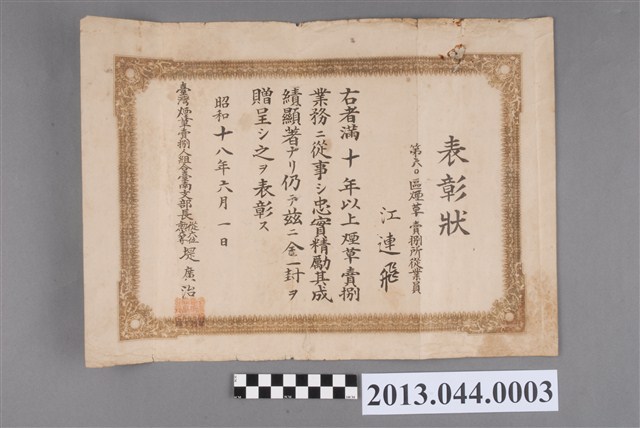 表彰狀
第六〇區煙草賣捌所從業員
江連飛
右者滿十年以上煙草賣捌
業務ニ從事シ忠實精勵其成
績顯著ナリ仍テ茲ニ金一封ヲ
贈呈シ之ヲ表彰ス
昭和十八年六月一日
臺灣煙草賣捌人組合臺南支部長
堤廣治
2013.044.0003